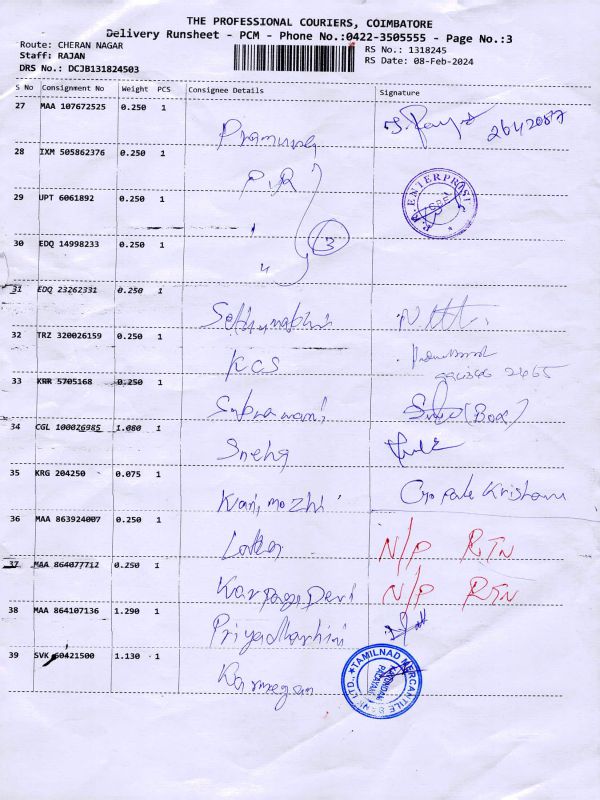 THE PROFESSIONAL COURIERS, COIMBATORE
Delivery Runsheet - PCM - Phone No.:0422-3505555 - Page No.:3
Route: CHERAN NAGAR
Staff: RAJAN
DRS No.: DCJB131824503
RS No.: 1318245
RS Date: 08-Feb-2024
S No Consignment No Weight PCS Consignee Details Signature
27 MAA 107672525 0.250 1
28 IXM 505862376 0.250 1
P.R
29 UPT 6061892 0.250 1
R.R. ENTERPRISES
CBE
30 EDQ 14998233 0.250 1
3
31 EDQ 23262331 0.250 1
32 TRZ 320026159 0.250 1
KCS
33 KRR 5705168 0.250 1
(Box)
34 CGL 100026985 1.080 1
Sneha
35 KRG 204250 0.075 1
Kanimozhi Gopala Krishnan
36 MAA 863924007 0.250 1
Latha N/P RTN
37 MAA 864077712 0.250 1
Karpaga Devi N/P RTN
38 MAA 864107136 1.290 1
Priyadharshini
39 SVK 60421500 1.130 1
TAMILNAD MERCANTILE BANK LTD.,